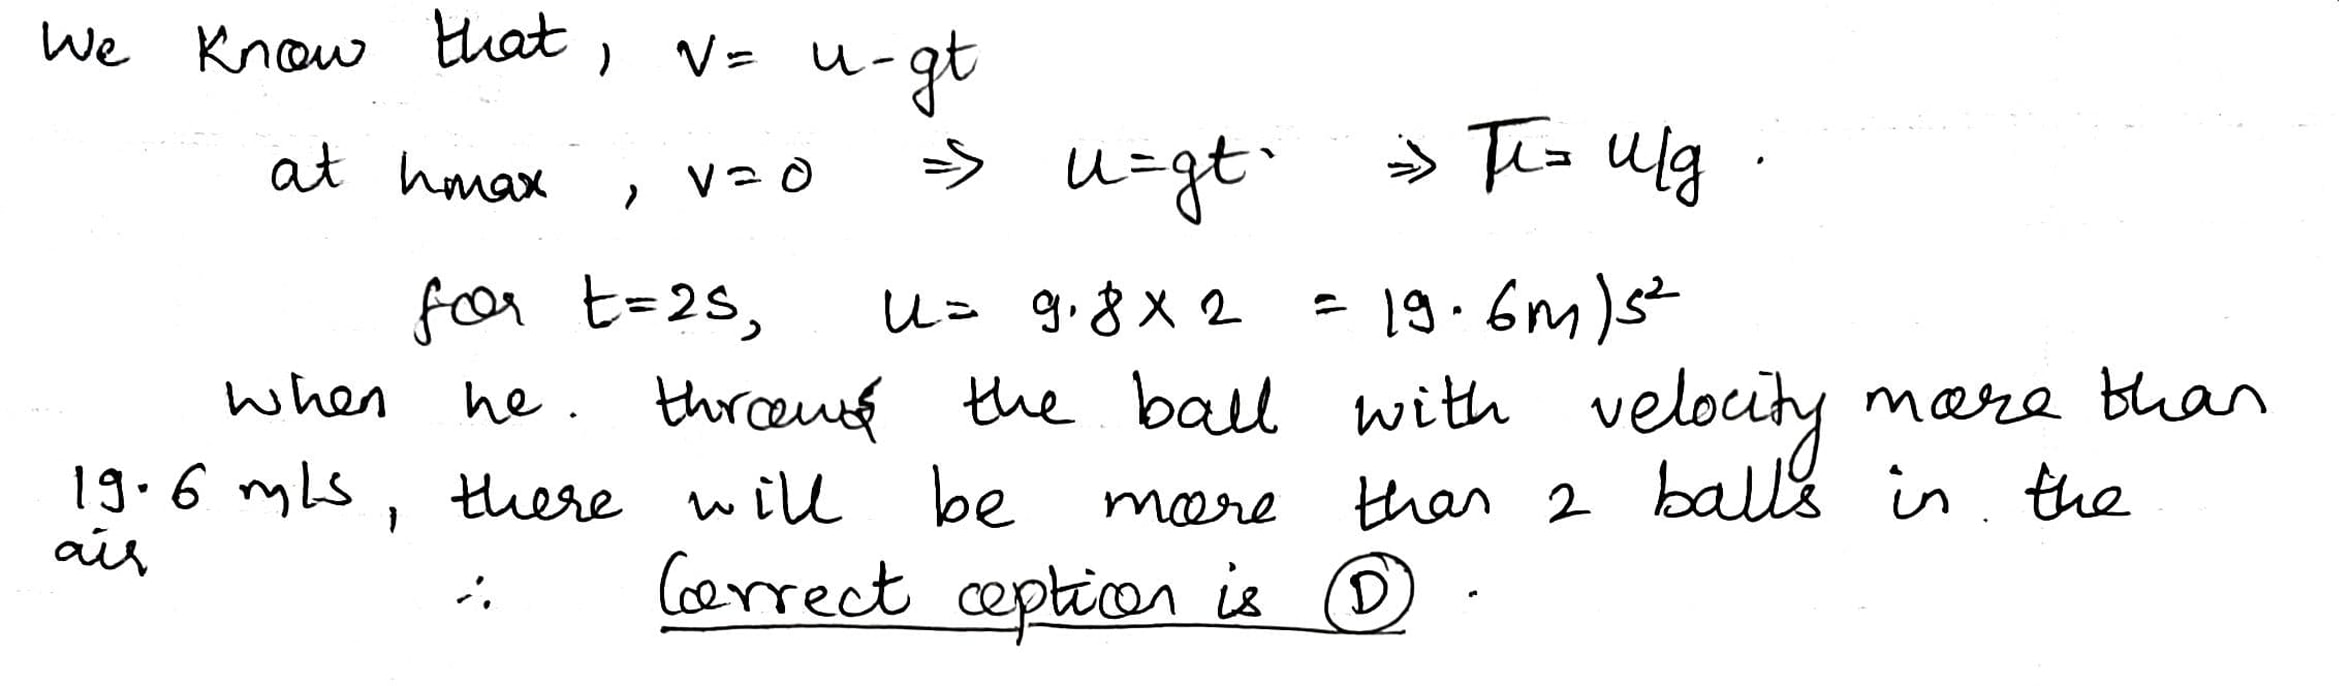 We know that, v= u-gt
at hmax, v=0 ⇒ u=gt. ⇒ = u/g.
for t=2s, u= 9.8x2 = 19.6m/s²
when he. throws the ball with velocity more than
19.6 m/s, there will be more than 2 balls in the
air
∴ Correct option is Ⓓ.